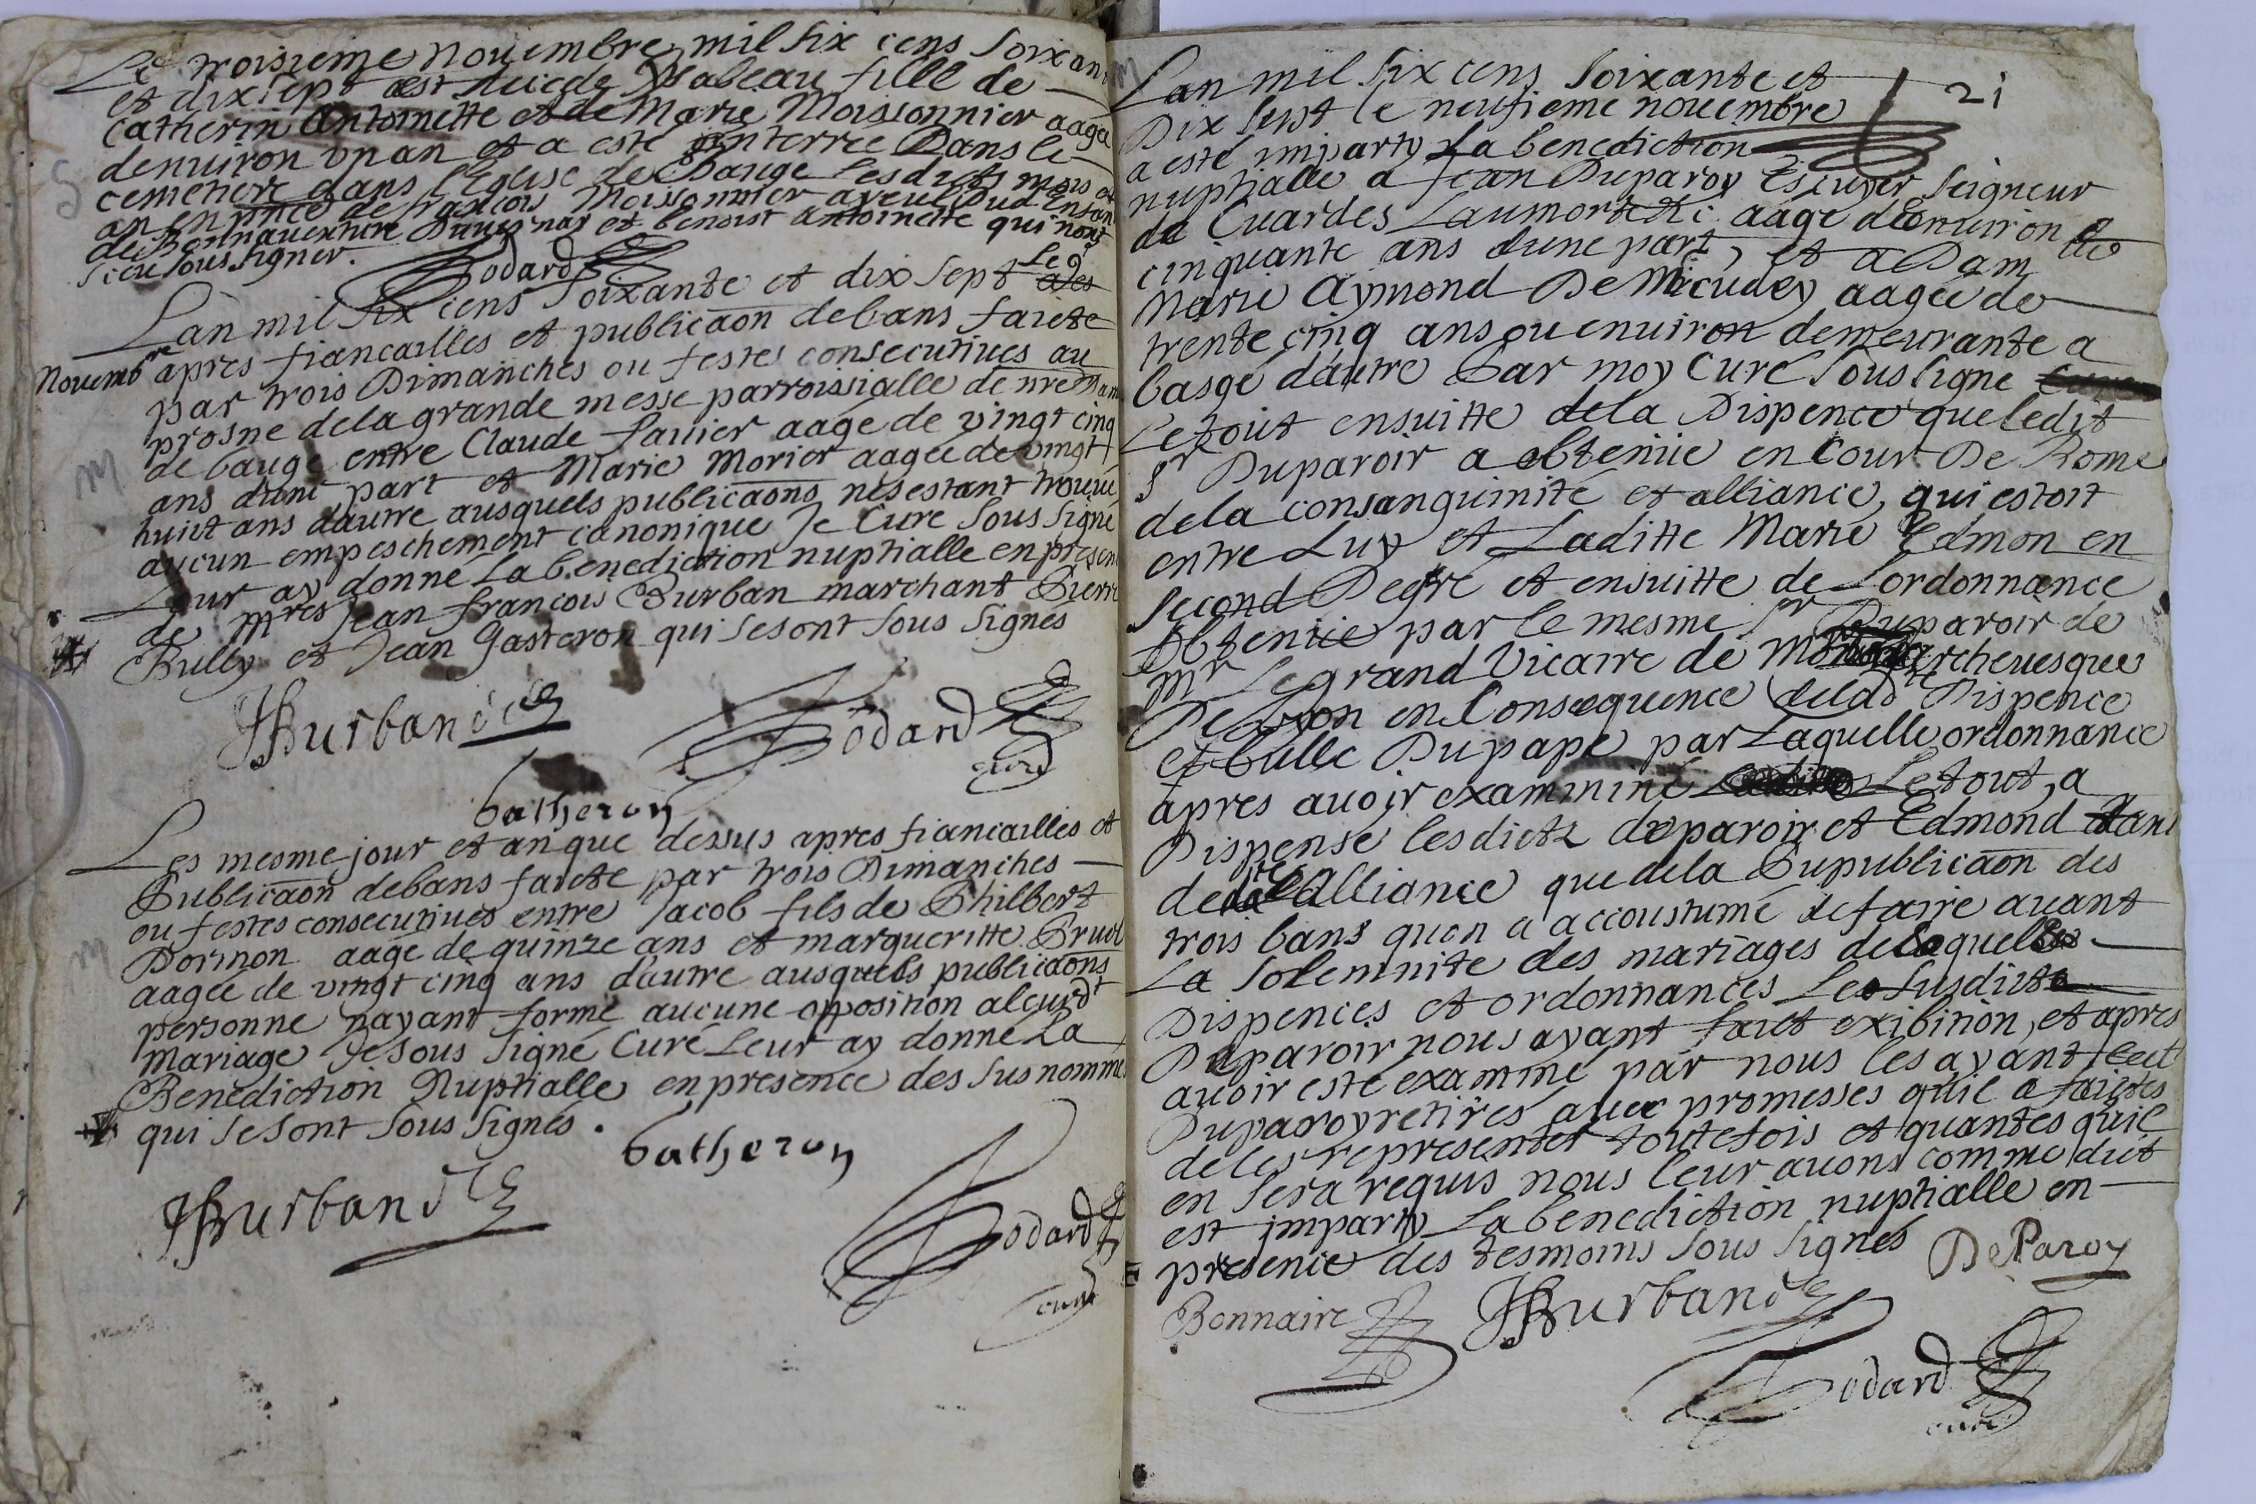 Le troisieme nouembre mil six cens soixan
et dix sept est decede Ysabeau fille de
Catherin Antoinette et de Marie Moissonnier aagée
denuiron vn an et a este enterrée Dans le
cemetiere dans l'Eglise de Bauge lesdicts mois et
an en pnce de francois Moissonnier ayeul Dud Enfan
de Bonnauenture Duuernay et benoist antoinette qui nont
sceu sous signer.
Bodard
Lan mil six cens soixante et dix sept le 9
Nouembre apres fiancailles et publicaon debans faicte
par trois Dimanches ou festes consecutiues au
prosne dela grande messe parroissialle de nre Dam
de bauge entre Claude faiuier aagé de vingt cinq
ans dune part et Marie Morier aagée de vingt
huict ans dautre ausquels publicaons nes estant trouué
aucun empeschement canonique Je Curé sous signé
Leur ay donné La benediction nuptialle en presen
de mres Jean francois Burban marchant Pierre
Bully et Jean Gasteron qui se sont sous signés
JBurband
Bodard
curé
Gatheron
Les mesme jour et an que dessus apres fiancailles et
Publicaon debans faicte par trois Dimanches
ou festes consecutiues entre Jacob fils de Philbert
Dormon aagé de quinze ans et margueritte
aagée de vingt cinq ans dautre ausquels publicaons
personne nayant formé aucune opposition aleurdt
mariage Je sous signé Curé Leur ay donné La
Benediction Nuptialle en presence des sus nommé
qui se sont sous signés.
Gatheron
JBurband
Bodard
curé
21
Lan mil six cens soixante et
Dix sept le neufieme nouembre
a esté imparty La benediction
nuptialle a Jean Duparoy Escuyer Seigneur
de Cuardes Laumortedic aagé denuiron
cinquante ans dune part, et a Dam lle
Marie Aymond De Micudey aagée de
trente cinq ans ou enuiron demeurante a
basgé dautre Par moy Curé sous signé
Le tout ensuitte dela Dispence que ledit
Sr Duparoir a obtenüe en Cour De Rome
dela consanguinité et alliance, qui estoit
entre Luy et Laditte Marie Edmon en
second Degré et ensuitte de Lordonnance
Obtenüe par le mesme Sr Duparoir de
Mr Le grand Vicaire de Archeuesque
De Lyon en Consequence delade Dispence
et bulle Du pape par Laquelle ordonnance
apres auoir examininé Le tout, a
Dispensé les dictz deparoir et Edmond tant
de lade alliance que dela Pupublicaon des
trois bans quon a accoustumé de faire auant
La solemnité des mariages de laquelle
Dispences et ordonnances Le susdict
Deparoir nous ayant faict exibition, et apres
auoir esté examiné par nous les ayant Ledt
Duparoy retirés auec promesses quil a faictes
deles representer toutefois et quantes quil
en sera requis nous leur auons comme dict
est imparty La benediction nuptialle en
presence des tesmoins sous signés
DeParoy
Bonnaire
JBurband
Bodard
curé